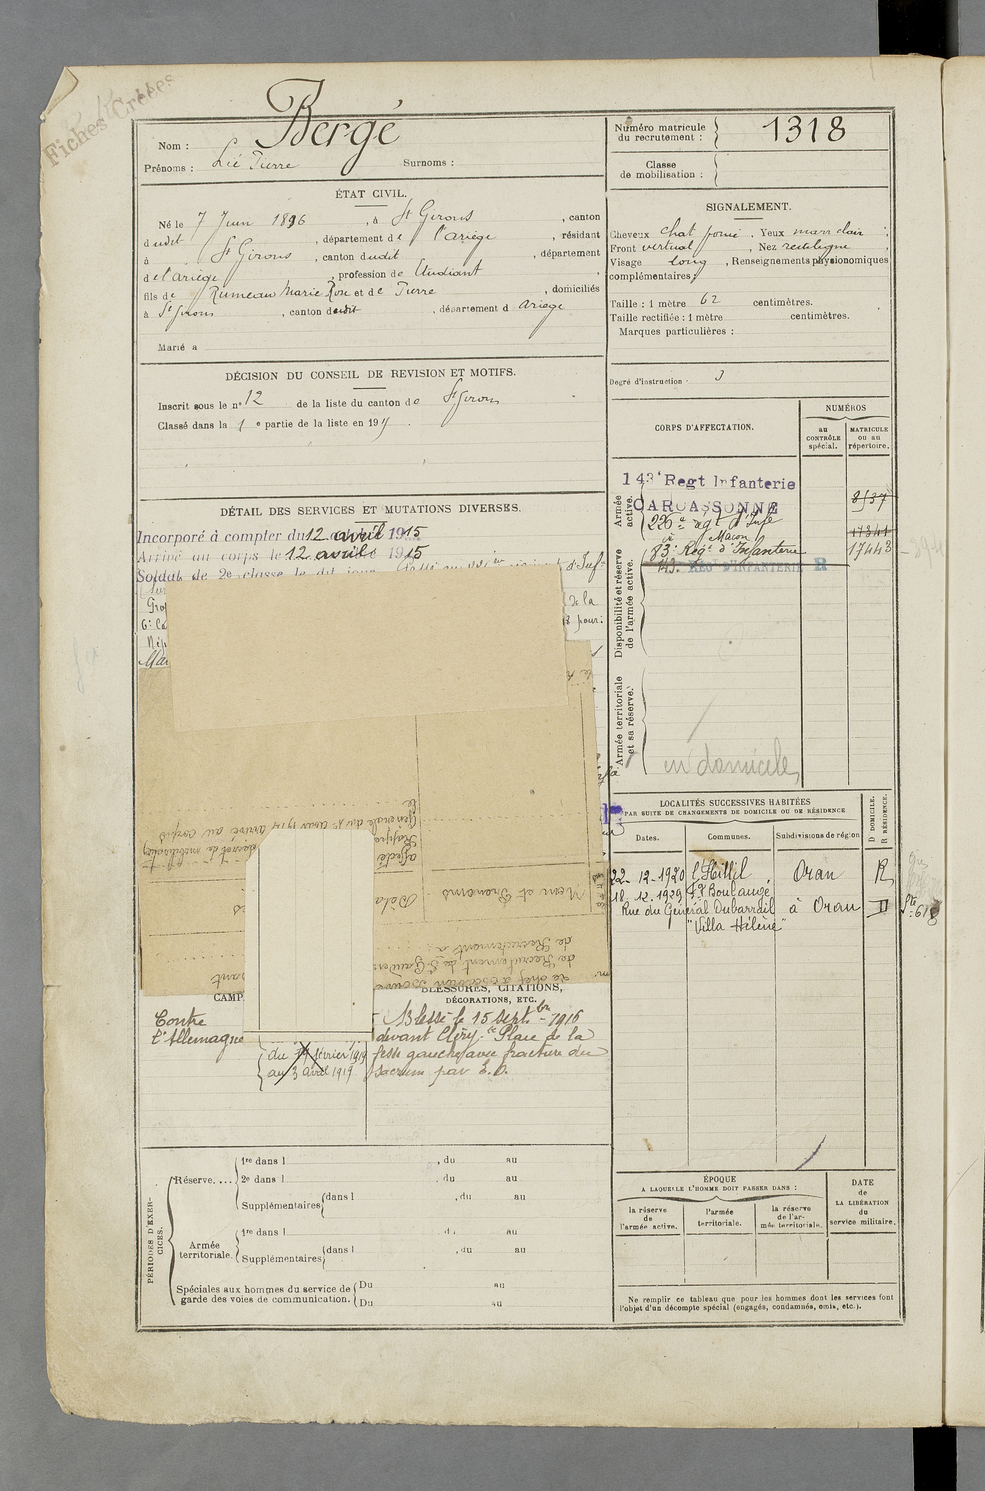 Fiches Créées
Nom : Bergé
Prénoms : Pierre Surnoms :
Numéro matricule
du recrutement : 1318
Classe
de mobilisation :
ÉTAT CIVIL.
Né le 7 Juin 1896, à St Girons, canton
dudit, département de l'Ariège, résidant
à St Girons, canton dudit, département
de l'Ariège, profession de Etudiant,
fils de Rumeau Marie Rose et de Pierre, domiciliés
à St Girons, canton dudit, département d Ariège
Marié a
SIGNALEMENT.
Cheveux chat foncé, Yeux marr clair;
Front vertical, Nez rectiligne
Visage long, Renseignements physionomiques
complémentaires;
Taille : 1 mètre 62 centimètres.
Taille rectifiée : 1 mètre centimètres.
Marques particulières :
Degré d'instruction 3
DÉCISION DU CONSEIL DE REVISION ET MOTIFS.
Inscrit sous le no 12 de la liste du canton de St Girons
Classé dans la 1e partie de la liste en 19
CORPS D'AFFECTATION.
NUMÉROS
au
CONTRÔLE
spécial.
MATRICULE
ou au
répertoire.
Armée
active.
143e Regt Infanterie
CARCASSONNE
8537
226e rgt d'Infie
17341
à Macon
83e Régt d'Infanterie
17443
143. REGt D'INFANTERIE R
Disponibilité et réserve
de l'armée active.
Armée territoriale
et sa réserve.
un domicile
DÉTAIL DES SERVICES ET MUTATIONS DIVERSES.
Incorporé à compter du 12 avril 1915
Arrivé au corps le 12 avril 1915
Soldat de 2e classe le dit jour. Passé au régiment d'Inf
de la
pour
Nom et Prénoms
de Recrutement à
de Recrutement de St Gaudens
Générale du 1er Aout 1914 arrivé au corps
le
LOCALITÉS SUCCESSIVES HABITÉES
PAR SUITE DE CHANGEMENTS DE DOMICILE OU DE RÉSIDENCE
D DOMICILE.
R RÉSIDENCE.
Dates.
Communes.
Subdivisions de région
22-12-1920 l'Hillil Oran R
18.12.1929 Fg Boulangé,
Rue du Général Dubarrail à Oran D
"Villa Hélène"
CAMP
BLESSURES, CITATIONS,
DÉCORATIONS, ETC.
Contre
l'Allemagne
du 19 février 1919
au 3 avril 1919
Blessé le 15 septbre 1916
devant Cléry. Plaie de la
fesse gauche avec fracture du
sacrum par E.O.
PÉRIODES D'EXERCICES.
Réserve....
1re dans l , du au
2e dans l , du au
Supplémentaires dans l , du au
Armée
territoriale.
1re dans l , du au
Supplémentaires dans l , du au
Spéciales aux hommes du service de
garde des voies de communication.
Du au
Du au
ÉPOQUE
A LAQUELLE L'HOMME DOIT PASSER DANS :
la réserve
de
l'armée active.
l'armée
territoriale.
la réserve
de l'ar-
mée territoriale.
DATE
de
LA LIBÉRATION
du
service militaire.
Ne remplir ce tableau que pour les hommes dont les services font
l'objet d'un décompte spécial (engagés, condamnés, omis, etc.).